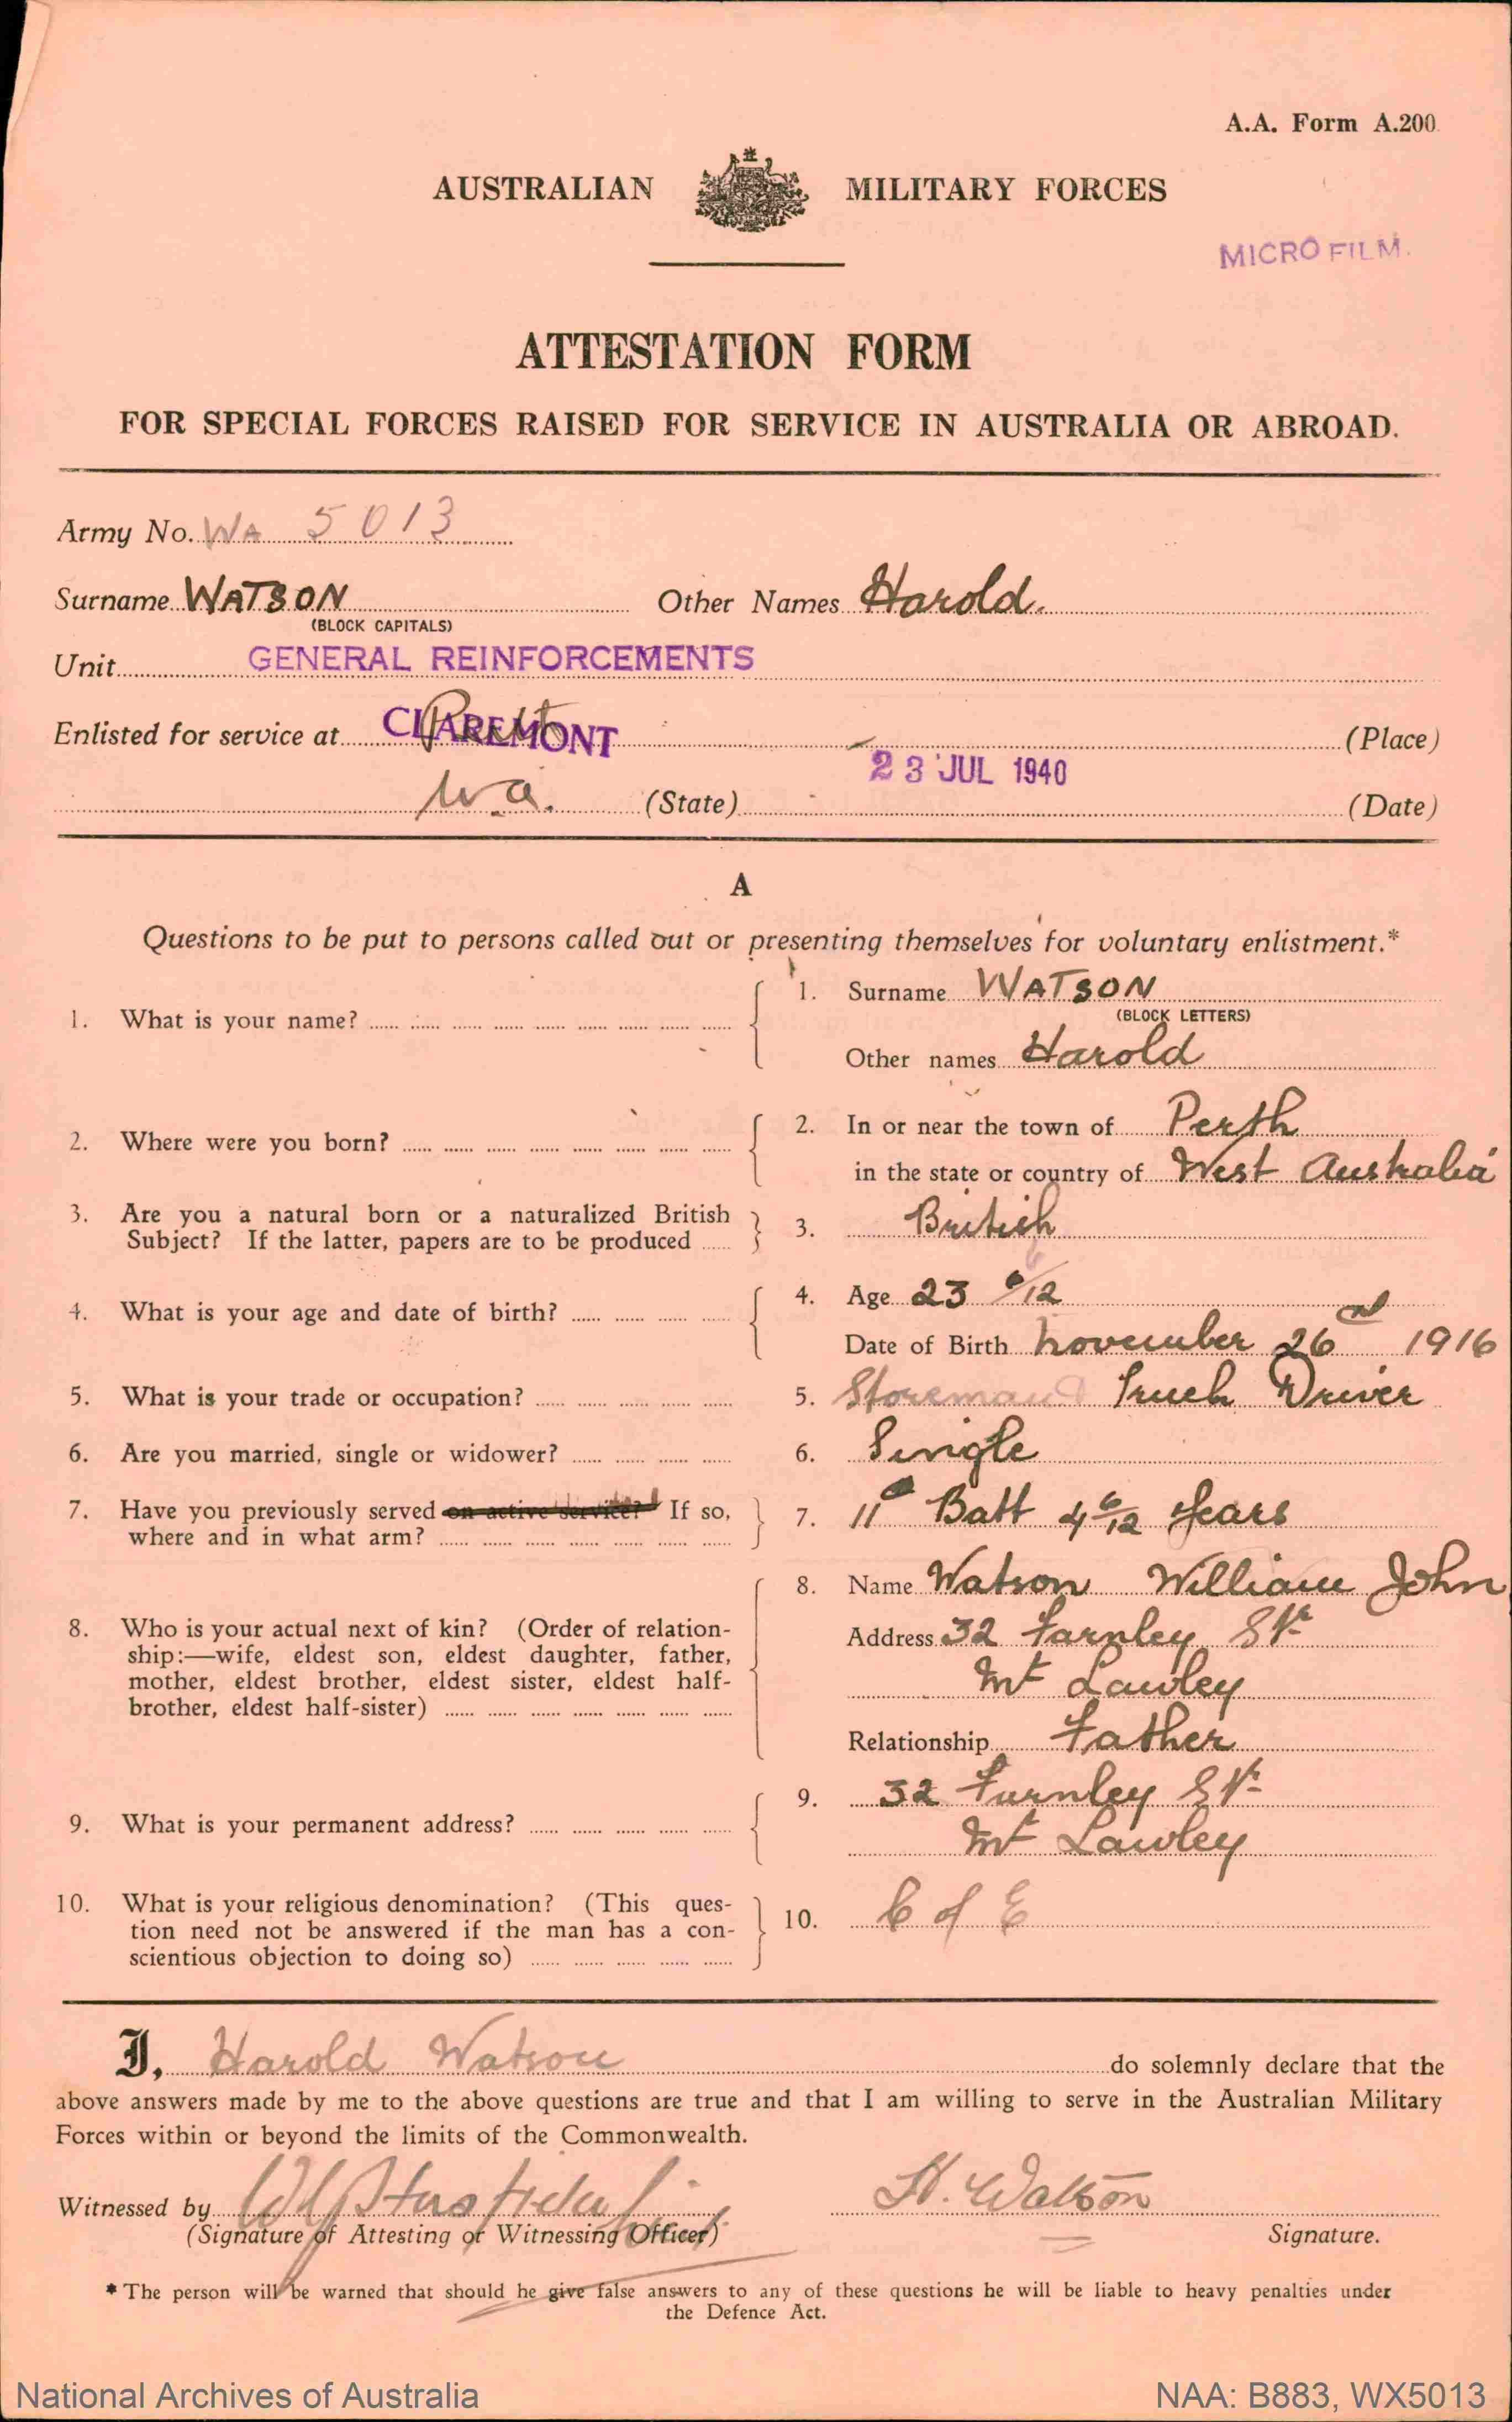 A.A. Form A.200
AUSTRALIAN MILITARY FORCES
MICRO FILM.
ATTESTATION FORM
FOR SPECIAL FORCES RAISED FOR SERVICE IN AUSTRALIA OR ABROAD.
Army No. WA 5013
Surname WATSON Other Names Harold.
(BLOCK CAPITALS)
Unit GENERAL REINFORCEMENTS
Enlisted for service at CLAREMONT (Place)
23 JUL 1940
W.A. (State) (Date)
A
Questions to be put to persons called out or presenting themselves for voluntary enlistment.*
1. What is your name?
1. Surname WATSON
(BLOCK LETTERS)
Other names Harold
2. Where were you born?
2. In or near the town of Perth
in the state or country of West Australia
3. Are you a natural born or a naturalized British
Subject? If the latter, papers are to be produced
3. British
4. What is your age and date of birth?
4. Age 23 /12
Date of Birth November 26 1916
5. What is your trade or occupation?
5. Storeman Truck Driver
6. Are you married, single or widower?
6. Single
7. Have you previously served on active service? If so,
where and in what arm?
7. 11 Batt 4 6/12 Years
8. Who is your actual next of kin? (Order of relation-
ship:—wife, eldest son, eldest daughter, father,
mother, eldest brother, eldest sister, eldest half-
brother, eldest half-sister)
8. Name Watson William John
Address 32 Farnley St
Mt Lawley
Relationship Father
9. What is your permanent address?
9. 32 Furnley St
Mt Lawley
10. What is your religious denomination? (This ques-
tion need not be answered if the man has a con-
scientious objection to doing so)
10. C of E
I, Harold Watson do solemnly declare that the
above answers made by me to the above questions are true and that I am willing to serve in the Australian Military
Forces within or beyond the limits of the Commonwealth.
Witnessed by H. Watson
(Signature of Attesting or Witnessing Officer) Signature.
* The person will be warned that should he give false answers to any of these questions he will be liable to heavy penalties under
the Defence Act.
National Archives of Australia NAA: B883, WX5013